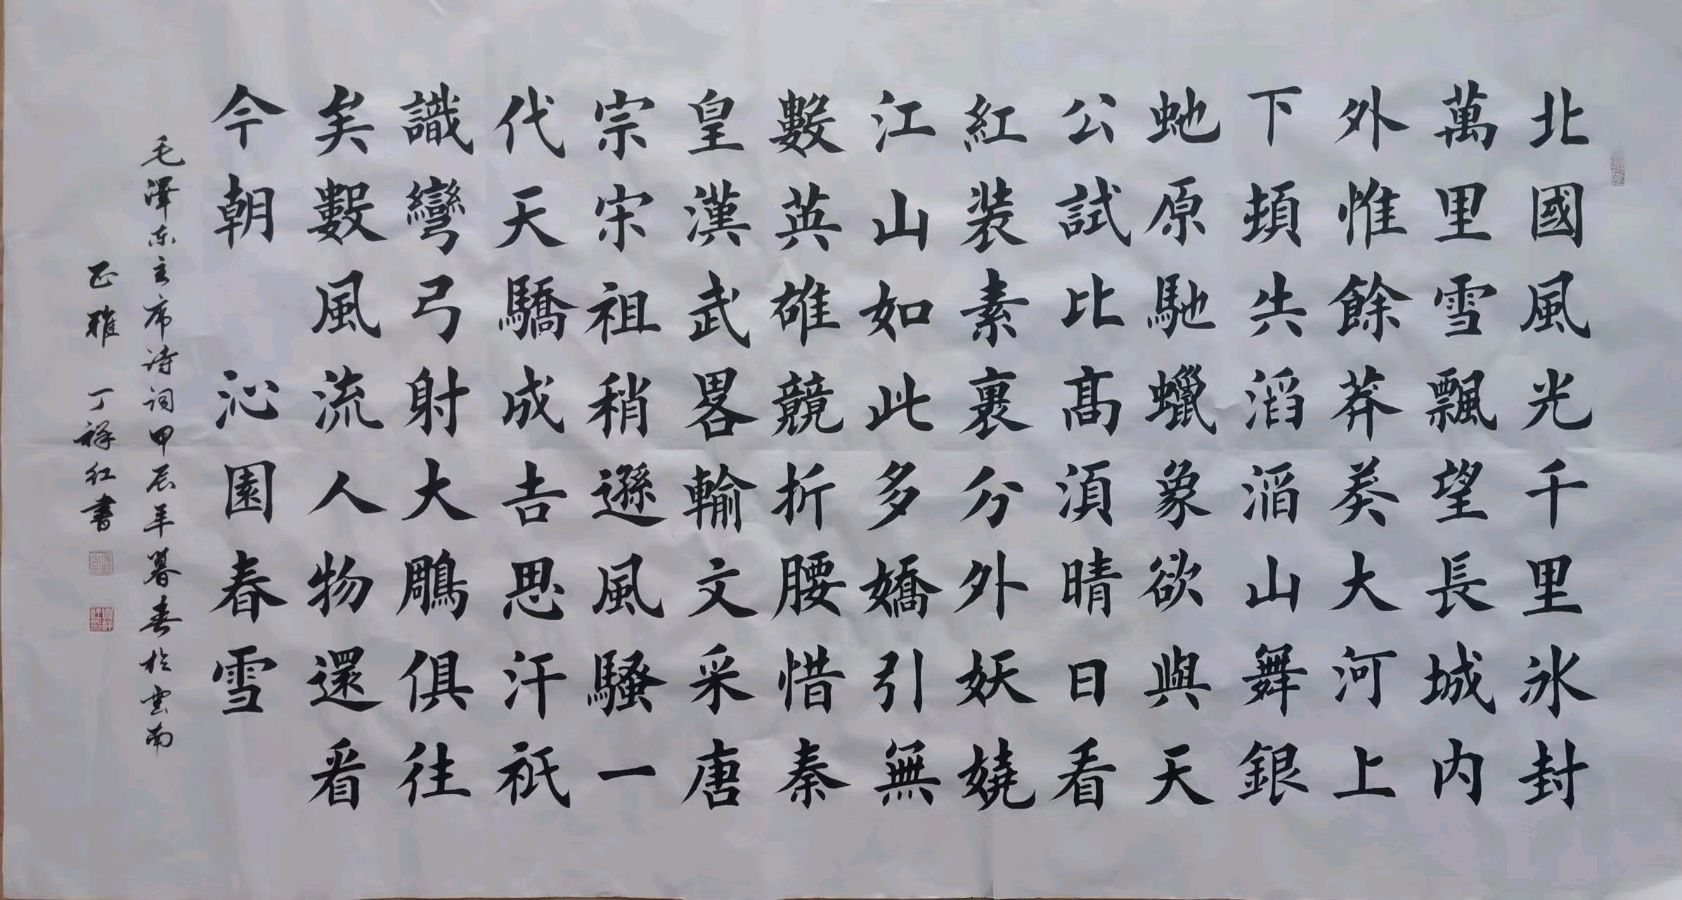 北國風光千里冰封
萬里雪飄望長城內
外惟餘莽莽大河上
下頓失滔滔山舞銀
虵原馳蠟象欲與天
公試比高須晴日看
紅裝素裹分外妖嬈
江山如此多嬌引無
數英雄競折腰惜秦
皇漢武畧輸文采唐
宗宋祖稍遜風騷一
代天驕成吉思汗祇
識彎弓射大鵰俱往
矣數風流人物還看
今朝 沁園春雪
毛澤东主席诗词甲辰年暮春於雲南
正雅 丁祥红書